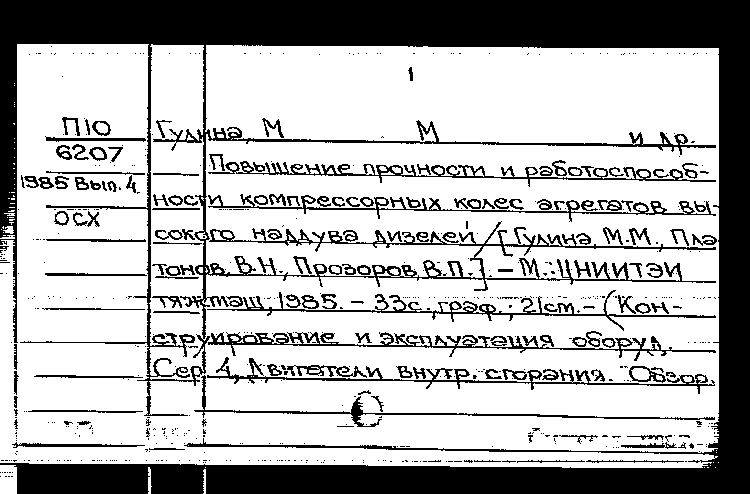 1
П10
6207
1985 Вып. 4.
ОСХ
Гулина, М М и др.
Повышение прочности и работоспособ-
ности компрессорных колес агрегатов вы-
сокого наддува дизелей / [Гулина, М.М., Пла-
тонов, В.Н., Прозоров, В.П.]. – М.: ЦНИИТЭИ
тяжмаш, 1985. – 33с., граф.; 21см. – (Кон-
струирование и эксплуатация оборуд.
Сер 4, Двигатели внутр. сгорания. Обзор.